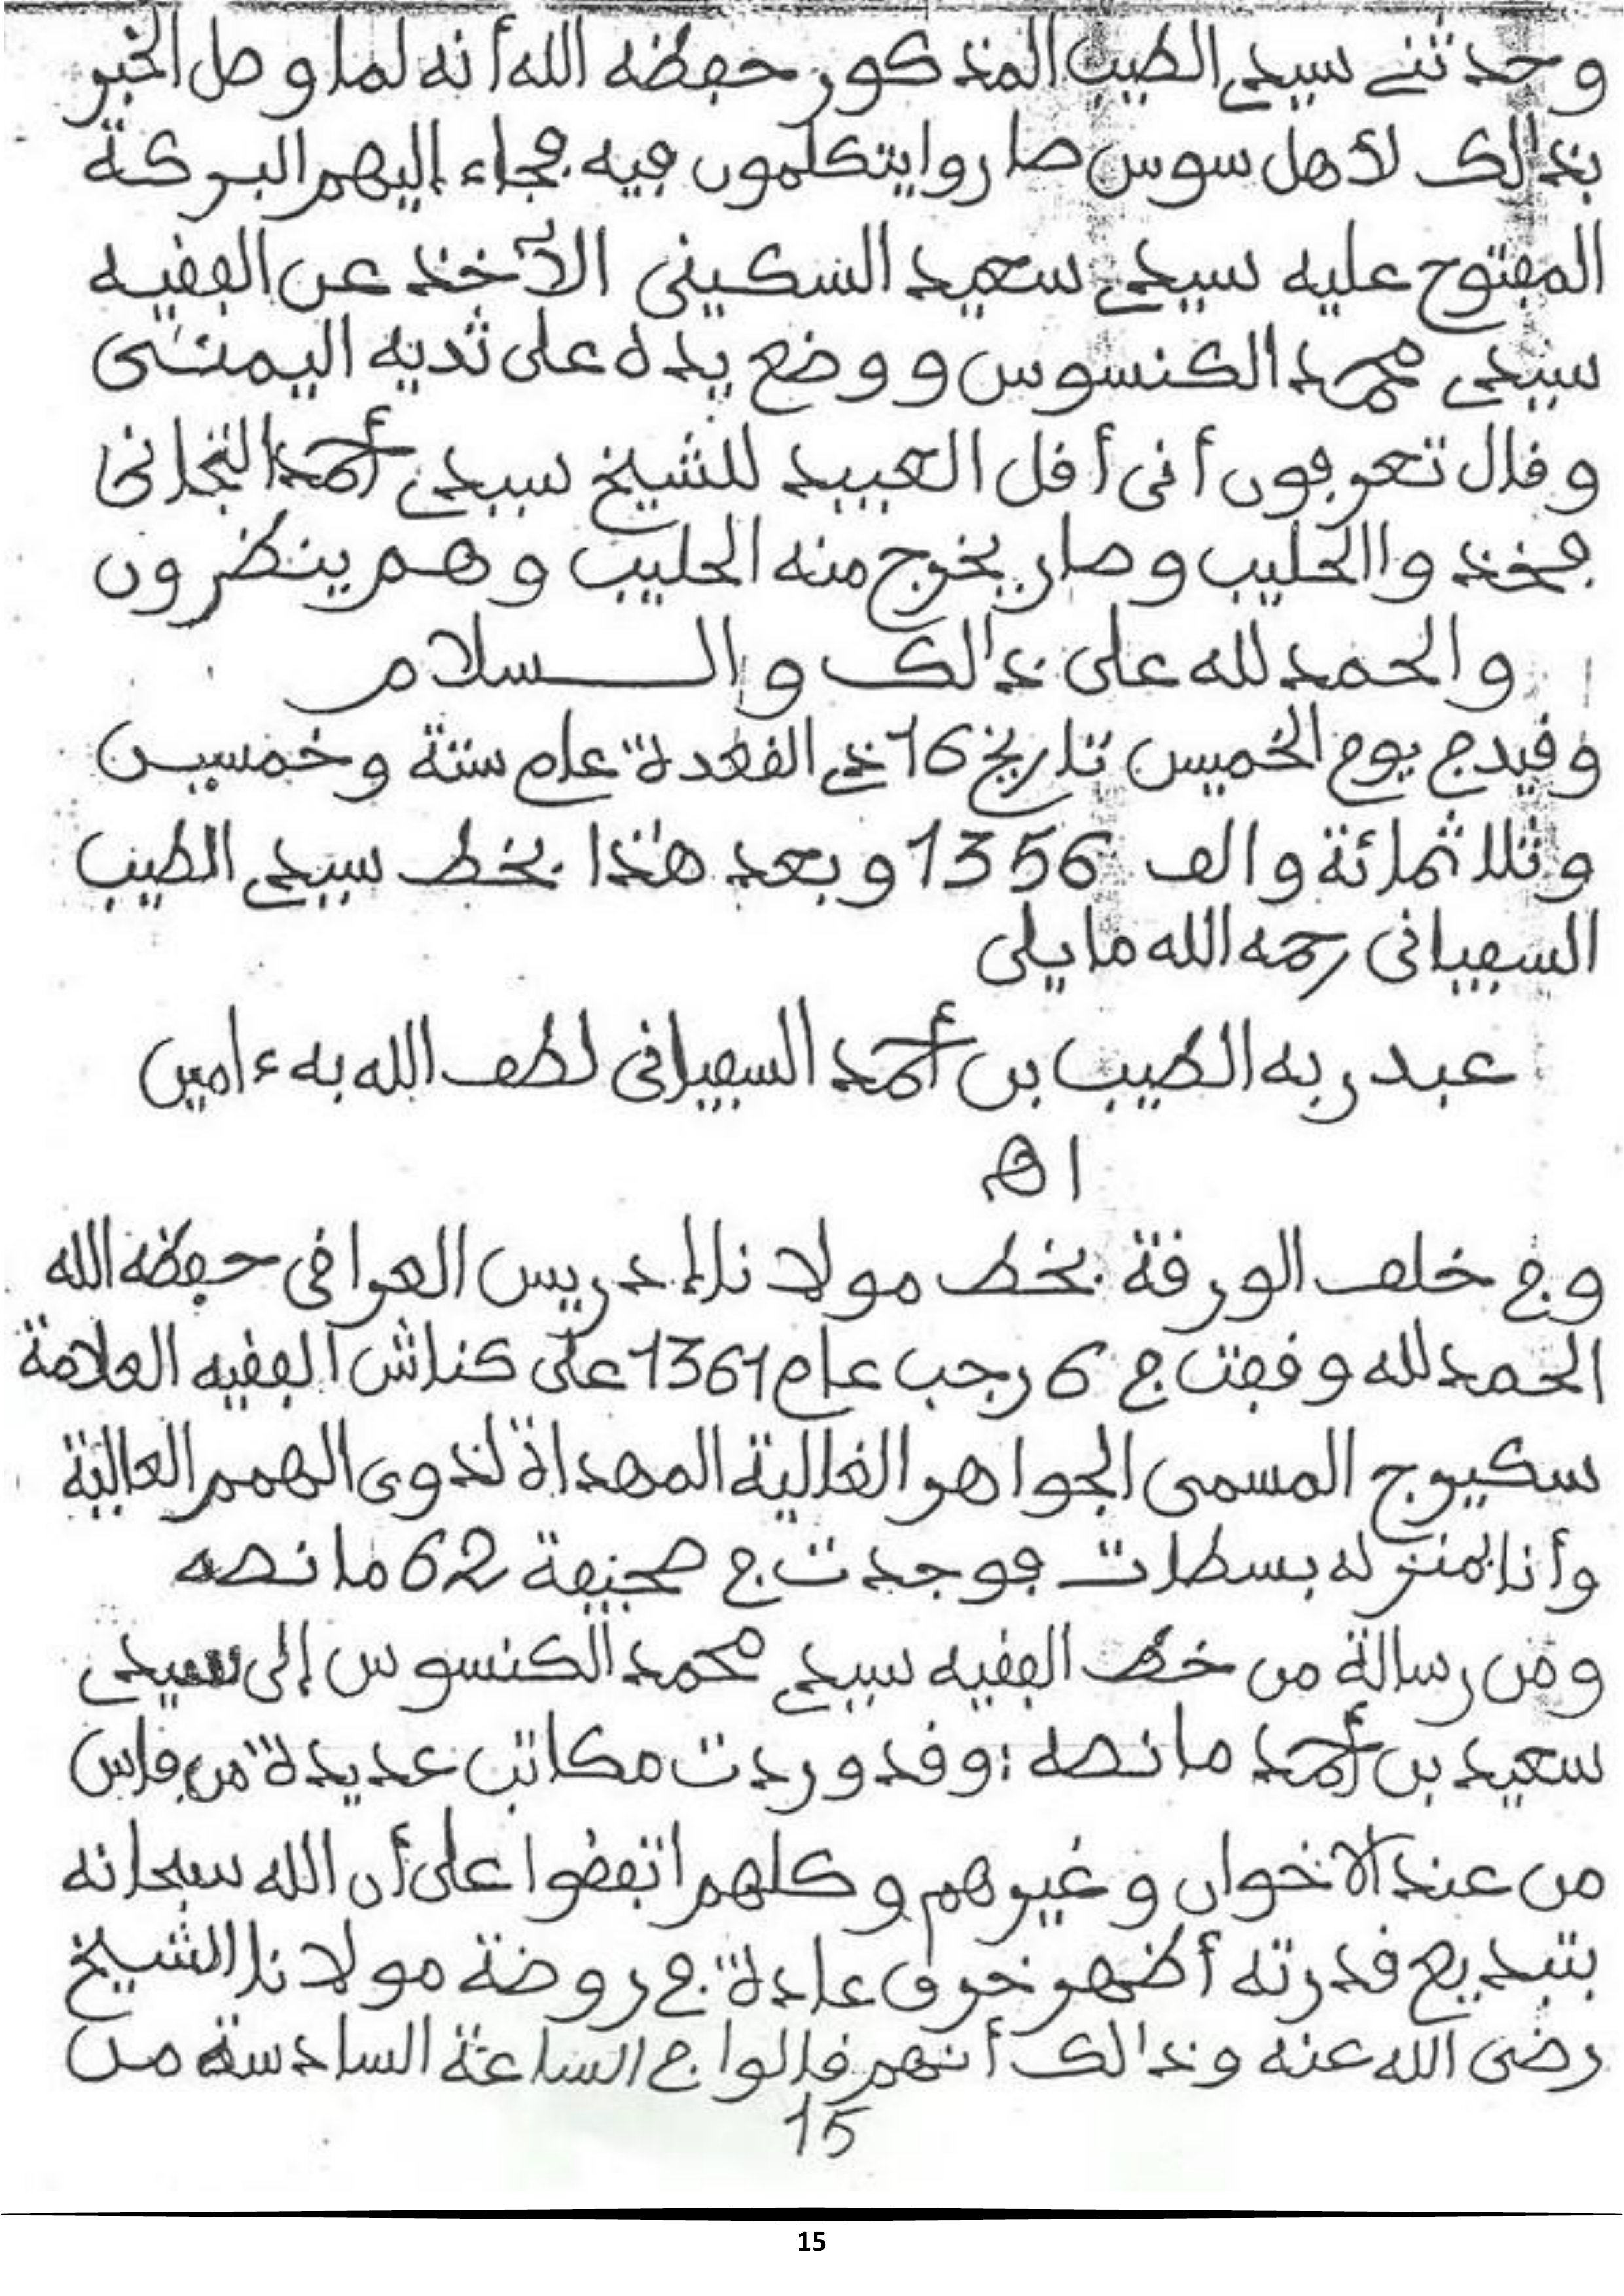 وحدثني سيدي الطيب المذكور حفظه الله أنه لما وصل الخبر
بذالك لأهل سوس صاروا يتكلمون فيه فجاء إليهم البركة
المفتوح عليه سيدي سعيد السكيني الآخذ عن الفقيه
سيدي محمد الكنسوس ووضع يده على ثديه اليمنى
وقال تعرفون أني أقل العبيد للشيخ سيدي أحمد التجاني
فخذوا الحليب وصار يخرج منه الحليب وهم ينظرون
والحمد لله على ذالك والسلام
وقيد في يوم الخميس تاريخ 16 ذي القعدة عام ستة وخمسين
وثلاثمائة والف 1356 وبعد هذا بخط سيدي الطيب
السفياني رحمه الله ما يلي
عبد ربه الطيب بن أحمد السفياني لطف الله به ءامين
اه
وفي خلف الورقة بخط مولانا إدريس العراقي حفظه الله
الحمد لله وقفت في 6 رجب عام 1361 على كناش الفقيه العلامة
سكيرج المسمى الجواهر الغالية المهداة لذوي الهمم العالية
وأنا بمنزله بسطات فوجدت في صحيفة 62 ما نصه
ومن رسالة من خط الفقيه سيدي محمد الكنسوس إلى سيدي
سعيد بن أحمد ما نصه : وقد وردت مكاتب عديدة من فاس
من عند الاخوان وغيرهم وكلهم اتفقوا على أن الله سبحانه
ببديع قدرته أظهر خرق عادة في روضة مولانا الشيخ
رضي الله عنه وذالك أنهم قالوا في الساعة السادسة من
15
15